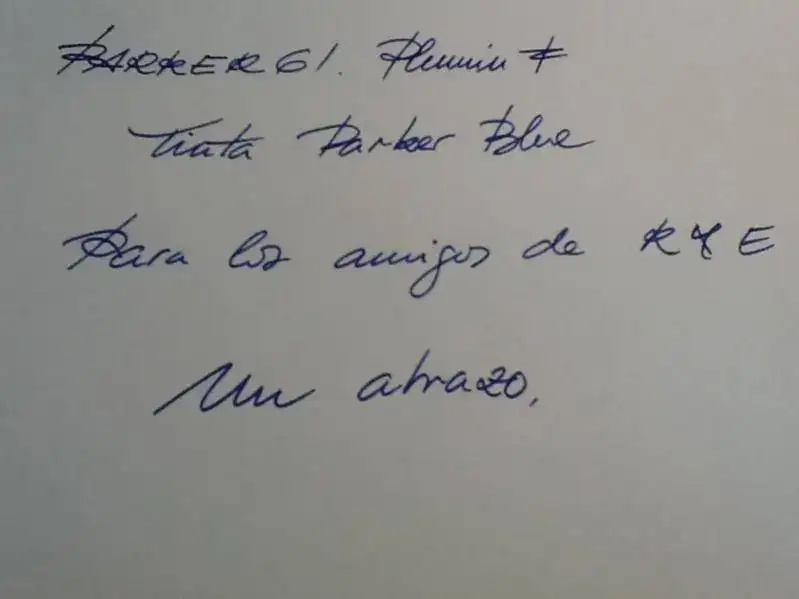 PARKER 61. Plumin F
Tinta Parker Blue
Para los amigos de R Y E
Un abrazo,